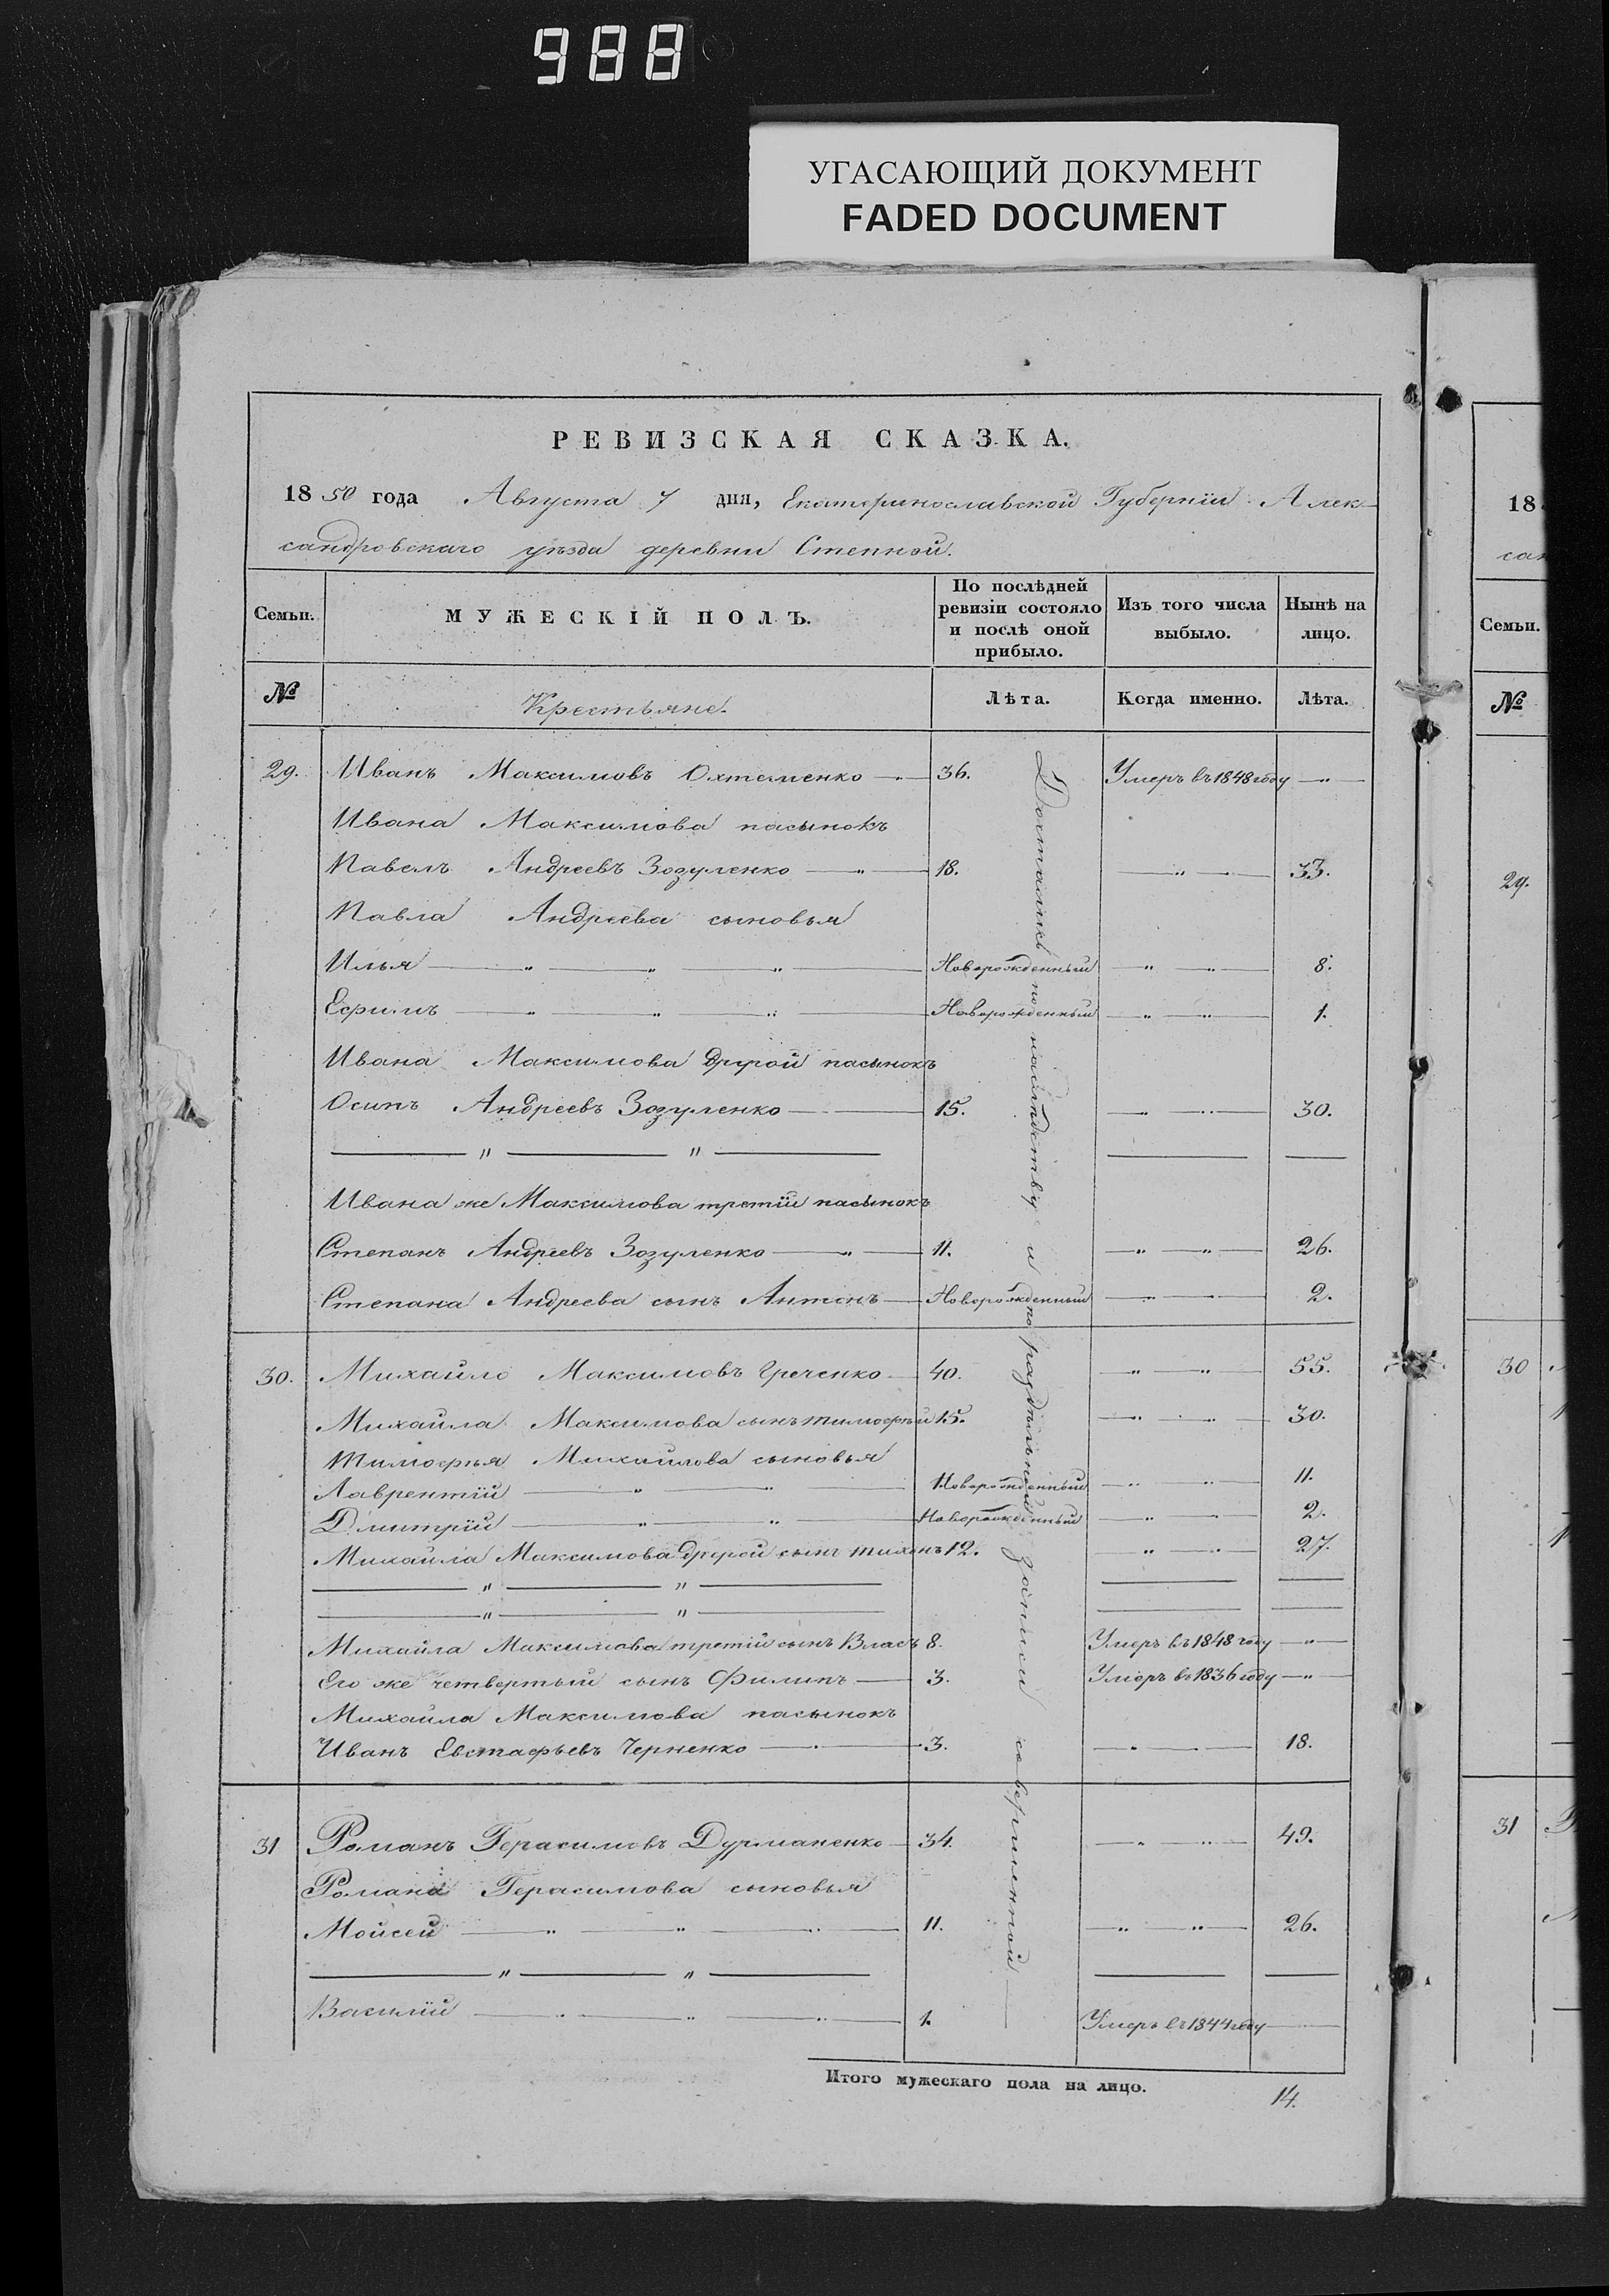 988
УГАСАЮЩИЙ ДОКУМЕНТ
FADED DOCUMENT
РЕВИЗСКАЯ СКАЗКА.
1850 года Августа 7 дня, Екатеринославской Губерніи Алек-
сандровскаго уѣзда деревни Степной.
Семьи. МУЖЕСКІЙ ПОЛЪ. По послѣдней ревизіи состояло и послѣ оной прибыло. Изъ того числа выбыло. Нынѣ на лицо.
№ Крестьяне. Лѣта. Когда именно. Лѣта.
29. Иванъ Максимовъ Охтеменко — 36. Умеръ въ 1848 году — " —
Ивана Максимова пасынокъ
Павелъ Андреевъ Зозуленко — " — 18. — " — 33.
Павла Андреева сыновья
Илья — " — " — " — Новорожденный — " — " — 8.
Ефимъ — " — " — " — Новорожденный — " — " — 1.
Ивана Максимова другой пасынокъ
Осипъ Андреевъ Зозуленко — 15. — " — " — 30.
— " — " —
Ивана же Максимова третій пасынокъ
Степанъ Андреевъ Зозуленко — " — 11. — " — " — 26.
Степана Андреева сынъ Антонъ — Новорожденный — " — " — 2.
30. Михайло Максимовъ Греченко — 40. — " — " — 55.
Михайла Максимова сынъ Тимофѣй 15. — " — " — 30.
Тимофѣя Михайлова сыновья
Лаврентій — " — " — Новорожденный — " — " — 11.
Дмитрій — " — " — Новорожденный — " — " — 2.
Михайла Максимова другой сынъ Тихонъ 12. — " — " — 27.
— " — " —
— " — " —
Михайла Максимова третій сынъ Власъ 8. Умеръ въ 1848 году — " —
Его же четвертый сынъ Филипъ — 3. Умеръ въ 1836 году — " —
Михайла Максимова пасынокъ
Иванъ Евстафьевъ Черненко — 3. — " — 18.
31 Романъ Герасимовъ Дурманенко — 34. — " — " — 49.
Романа Герасимова сыновья
Мойсей — " — " — " — 11. — " — " — 26.
— " — " —
Василій — " — " — " — 1. Умеръ въ 1844 году —
Достались по наслѣдству и по раздѣльной записи совершенной —
Итого мужескаго пола на лицо. 14.
18
сан
Семьи.
№
29.
30
31